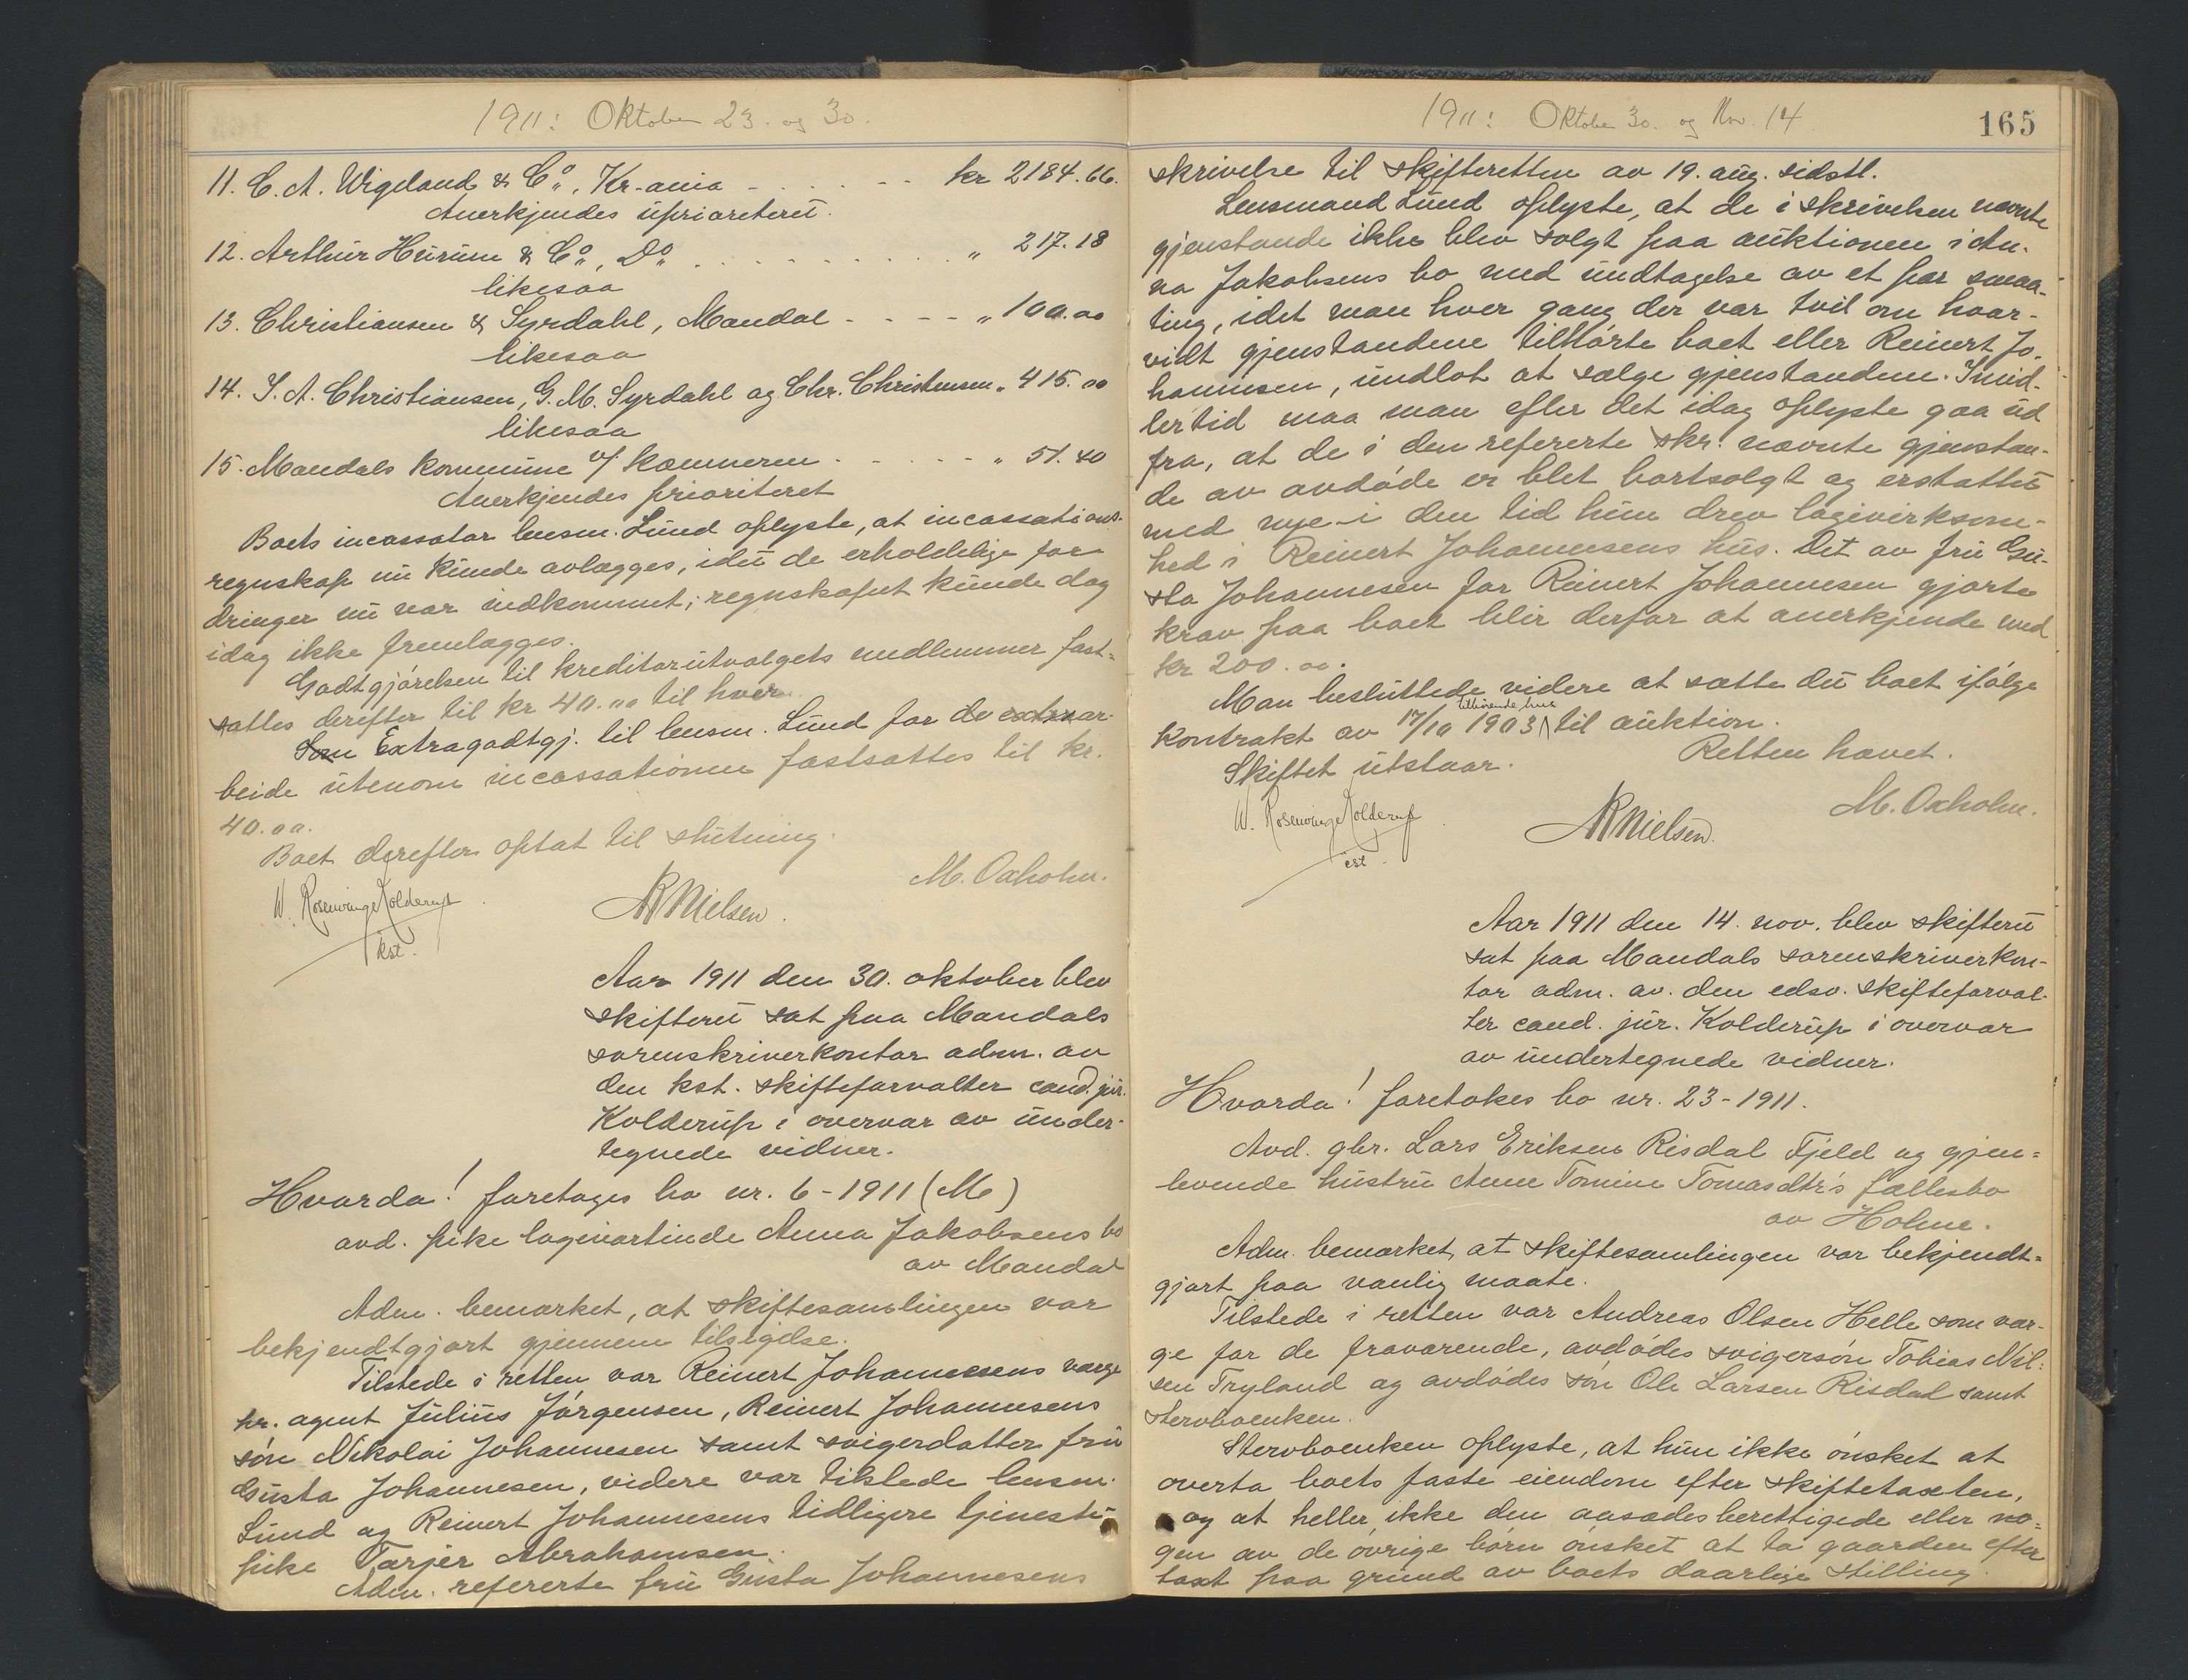 1911: Oktober 23. og 30.
11. C. A. Wigeland & Co., Kr.ania - - - - - - kr 2184.66.
Anerkjendes uprioritert.
12. Arthur Heurum & Co., Do. . . . . . . . . . . " 217.18
likesaa
13. Christiansen & Syrdahl, Mandal - - - - " 100.00
likesaa
14. S. A. Christiansen, G. M. Syrdahl og Chr. Christensen " 415.00
likesaa
15. Mandals kommune v/ kæmneren - - - - - " 51.40
Anerkjendes prioriteret
Boets incassator lensm. Lund oplyste, at incassations-
regnskap nu kunde avlægges, idet de erholdelige for-
dringer nu var indkommet; regnskapet kunde dog
idag ikke fremlægges.
Godtgjørelsen til kreditorutvalgets medlemmer fast-
sattes derefter til kr 40.00 til hver.
Som Extragodtgj. til lensm. Lund for de extraar-
beide utenom incassationen fastsattes til kr.
40.00.
Boet derefter optat til slutning.
M. Oxholm.
W. Rosenvinge Kolderup
kst.
AR Nielsen.
Aar 1911 den 30. oktober blev
skifteret sat paa Mandals
sorenskriverkontor adm. av
den kst. skifteforvalter cand. jur.
Kolderup i overvær av under-
tegnede vidner.
Hvorda! foretages bo nr. 6-1911 (M)
avd. pike losjivertinde Anna Jakobsens bo
av Mandal
Adm. bemerket, at skiftesamlingen var
bekjendtgjort gjennem tilsigelse.
Tilstede i retten var Reinert Johannesens verge
hr. agent Julius Jørgensen, Reinert Johannesens
søn Nikolai Johannesen samt svigerdatter fru
Gusta Johannesen, videre var tilstede lensm.
Lund og Reinert Johannesens tidligere tjeneste-
pike Tarjer Abrahamsen.
Adm. refererte fru Gusta Johannesens
1911: Oktober 30. og Nov. 14.
165
skrivelse til skifteretten av 19. aug. sidstl.
Lensmand Lund oplyste, at de i skrivelsen nævnte
gjenstande ikke blev solgt paa auktionen i An-
na Jakobsens bo med undtagelse av et par smaa-
ting, idet man hver gang der var tvil om hvor-
vidt gjenstandene tilhørte boet eller Reinert Jo-
hannesen, undlot at sælge gjenstandene. Imid-
lertid maa man efter det idag oplyste gaa ud
fra, at de i den refererte skr. nævnte gjenstan-
de av avdøde er blet bortsolgt og erstattet
med nye i den tid hun drev logivirksom-
hed i Reinert Johannesens hus. Det av fru Gu-
sta Johannesen for Reinert Johannesen gjorte
krav paa boet blir derfor at anerkjende med
kr 200.00.
Man besluttede videre at sætte det boet ifølge
kontrakt av 17/10 1903 tilhørende hus til auktion.
Skiftet utstaar.
Retten hævet.
M. Oxholm.
W. Rosenvinge Kolderup
cst
AR Nielsen.
Aar 1911 den 14. nov. blev skifteret
sat paa Mandals sorenskriverkon-
tor adm. av. den edsv. skifteforval-
ter cand. jur. Kolderup i overvær
av undertegnede vidner.
Hvorda! foretokes bo nr. 23-1911.
Avd. gbr. Lars Eriksen Risdal Fjeld og gjen-
levende hustru Anne Tomine Tomasdtr's fællesbo
av Holme.
Adm. bemerket, at skiftesamlingen var bekjendt-
gjort paa vanlig maate.
Tilstede i retten var Andreas Olsen Helle som ver-
ge for de fraværende, avdødes svigersøn Tobias Nil-
sen Tryland og avdødes søn Ole Larsen Risdal samt
stervboenken.
Stervboenken oplyste, at hun ikke ønsket at
overta boets faste eiendom efter skiftetaxten,
og at heller ikke den aasædesberettigede eller no-
gen av de øvrige børn ønsket at ta gaarden efter
taxt paa grund av boets daarlige stilling.